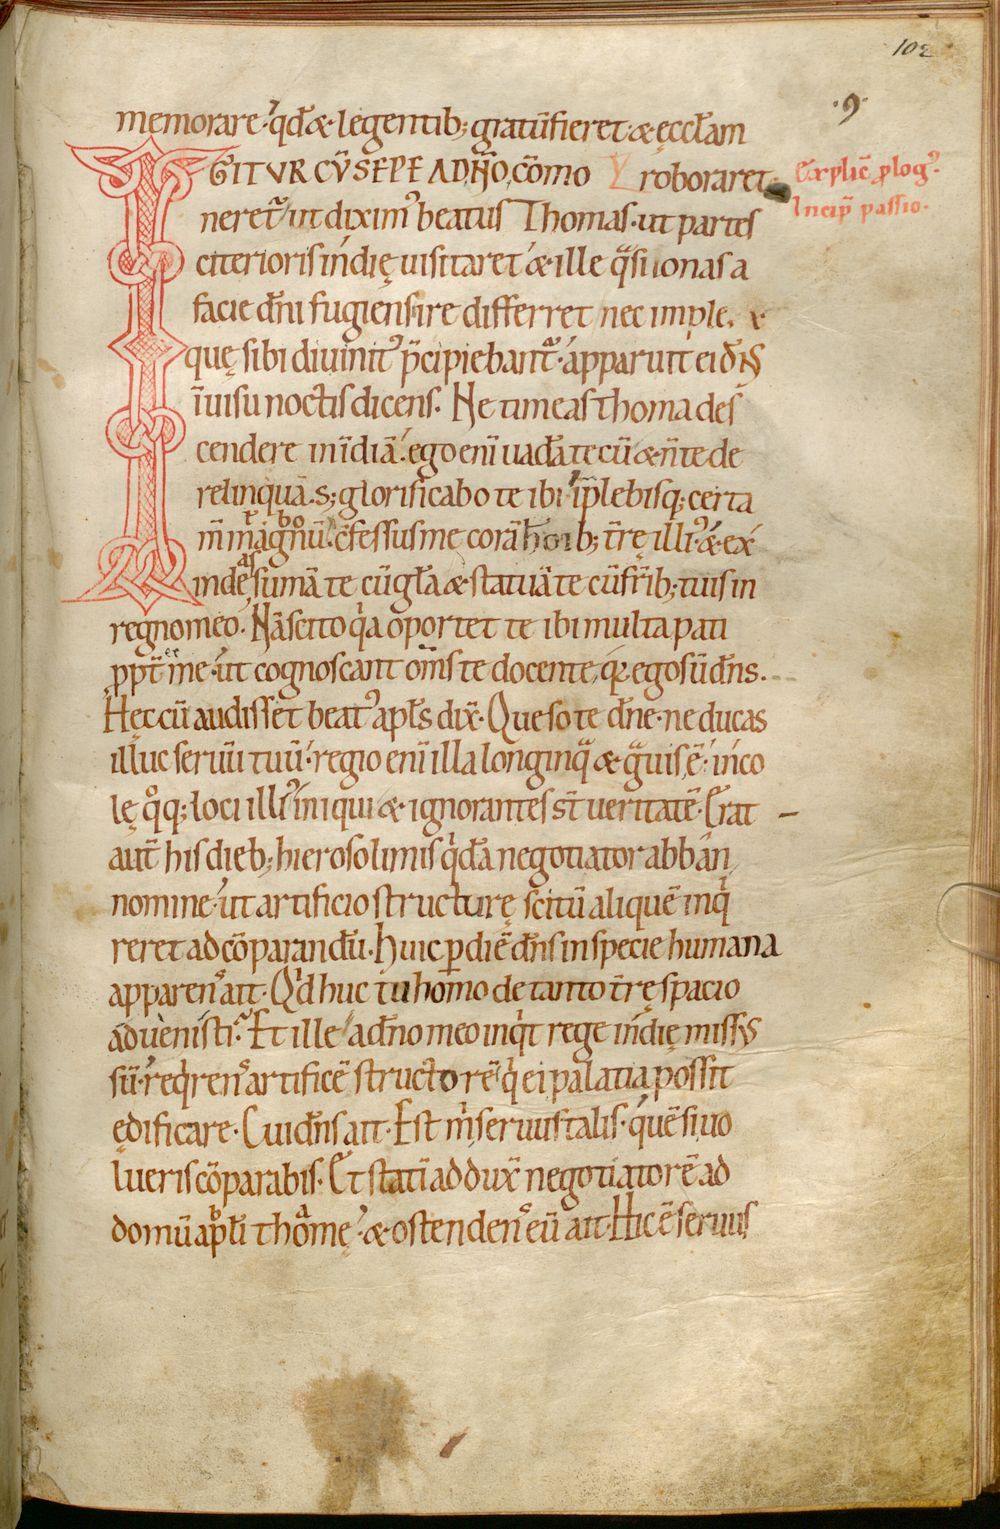 102
·9·
memorare· qđ & legentib; gratū fieret & ęccłam
IGITVR CV̄ SEPE A DN̄O cōmo roboraret·
Explic̄ plog᷒·
Incip̄ passio·
neret᷒ ut dixim᷒ beatus Thomas· ut partes
citerioris indię uisitaret & ille q̄si ionas a
facie dn̄i fugiens ire differret nec imple,
quę sibi diuinit᷒ p̄cipiebant᷒· apparuit ei dn̄s
ī uisu noctis dicens· Ne timeas thoma des
cendere in īdiā· ego enī uadā tecū & n̄ te de
relinquā· s; glorificabo te ibi· īplebisq; certa
m̄ magnū· c̄fessus me corā hoīb; tr̄ę illi᷒· & ex
inde sumā te cū gła & statuā te cū fr̄ib; tuis in
regno meo· Nā scito q̇a oportet te ibi multa pati
ppt̄ me· ut cognoscant om̄s te docente, qr̄ ego sū dn̄s.
Hęc cū audisset beat᷒ apłs dix̄· Queso te dn̄e· ne ducas
illuc seruū tuū· regio enī illa longinq̄ & ḡuis ē· inco
lę q̊q; loci illi᷒ iniqui & ignorantes st̄ ueritatē· Erat
aut̄ his dieb; hierosolimis q̇dā negotiator abban
nomine· ut artificio structurę scitū aliquē inq̇
reret ad cōparandū· Huic p̱ diē dn̄s in specie humana
apparen᷒ ait· Q̇d huc tu homo de tanto tr̄ę spacio
aduenisti? Et ille a dn̄o meo inq̇t rege indię missus
sū· req̇ren᷒ artificē structorē q̇ ei palatia possit
ędificare· Cui dn̄s ait· Est ṁ seruus talis· quē si uo
lueris cōparabis· Et statī addux̄ negotiatorē ad
domū apłi thomę· & ostenden᷒ eū ait· Hic ē seruus